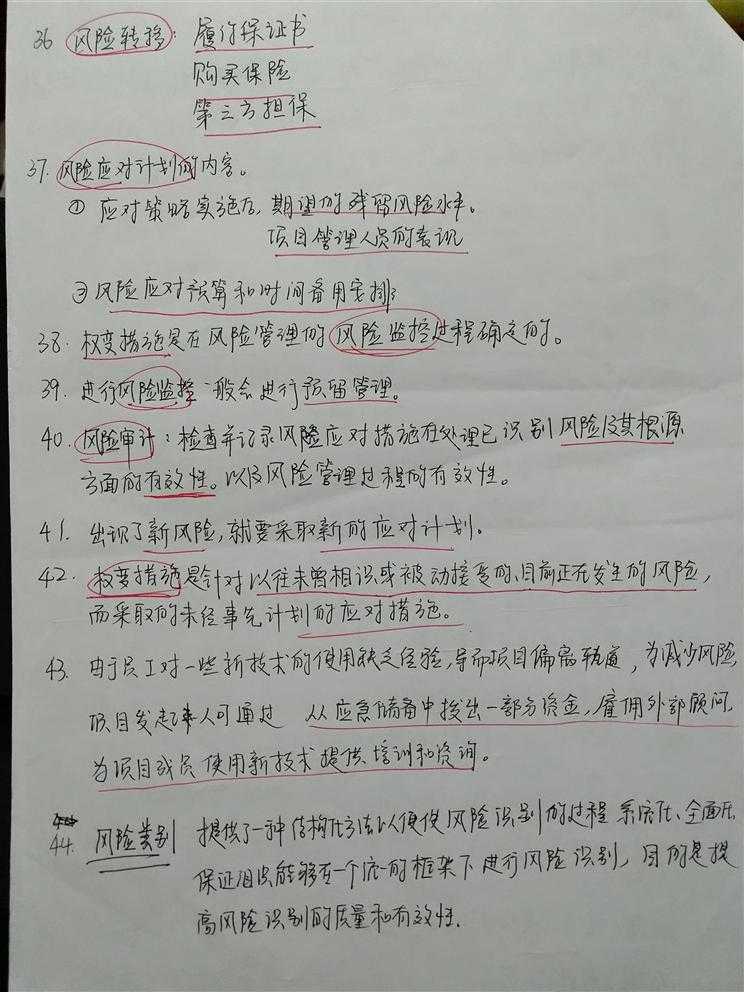 36 风险转移：履约保证书
购买保险
第三方担保
37. 风险应对计划的内容。
① 应对策略实施后，期望的残留风险水平。
项目管理人员的表现
③ 风险应对预算和时间备用安排
38. 权变措施是在风险管理的风险监控过程确定的。
39. 进行风险监控一般会进行预留管理。
40. 风险审计：检查并记录风险应对措施在处理已识别风险及其根源
方面的有效性。以及风险管理过程的有效性。
41. 出现了新风险，就要采取新的应对计划。
42. 权变措施是针对以往未曾相识或被动接受的、目前正在发生的风险，
而采取的未经事先计划的应对措施。
43. 由于员工对一些新技术的使用缺乏经验，导而项目偏离轨道，为减少风险，
项目发起人可通过 从应急储备中拨出一部分资金，雇佣外部顾问，
为项目成员使用新技术提供培训和咨询。
44. 风险类别 提供了一种结构化方法以便使风险识别的过程系统化、全面化
保证组织能够在一个统一的框架下进行风险识别，目的是提
高风险识别的质量和有效性.